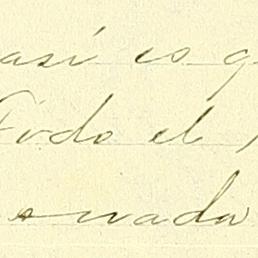 así es q
Todo el
nada